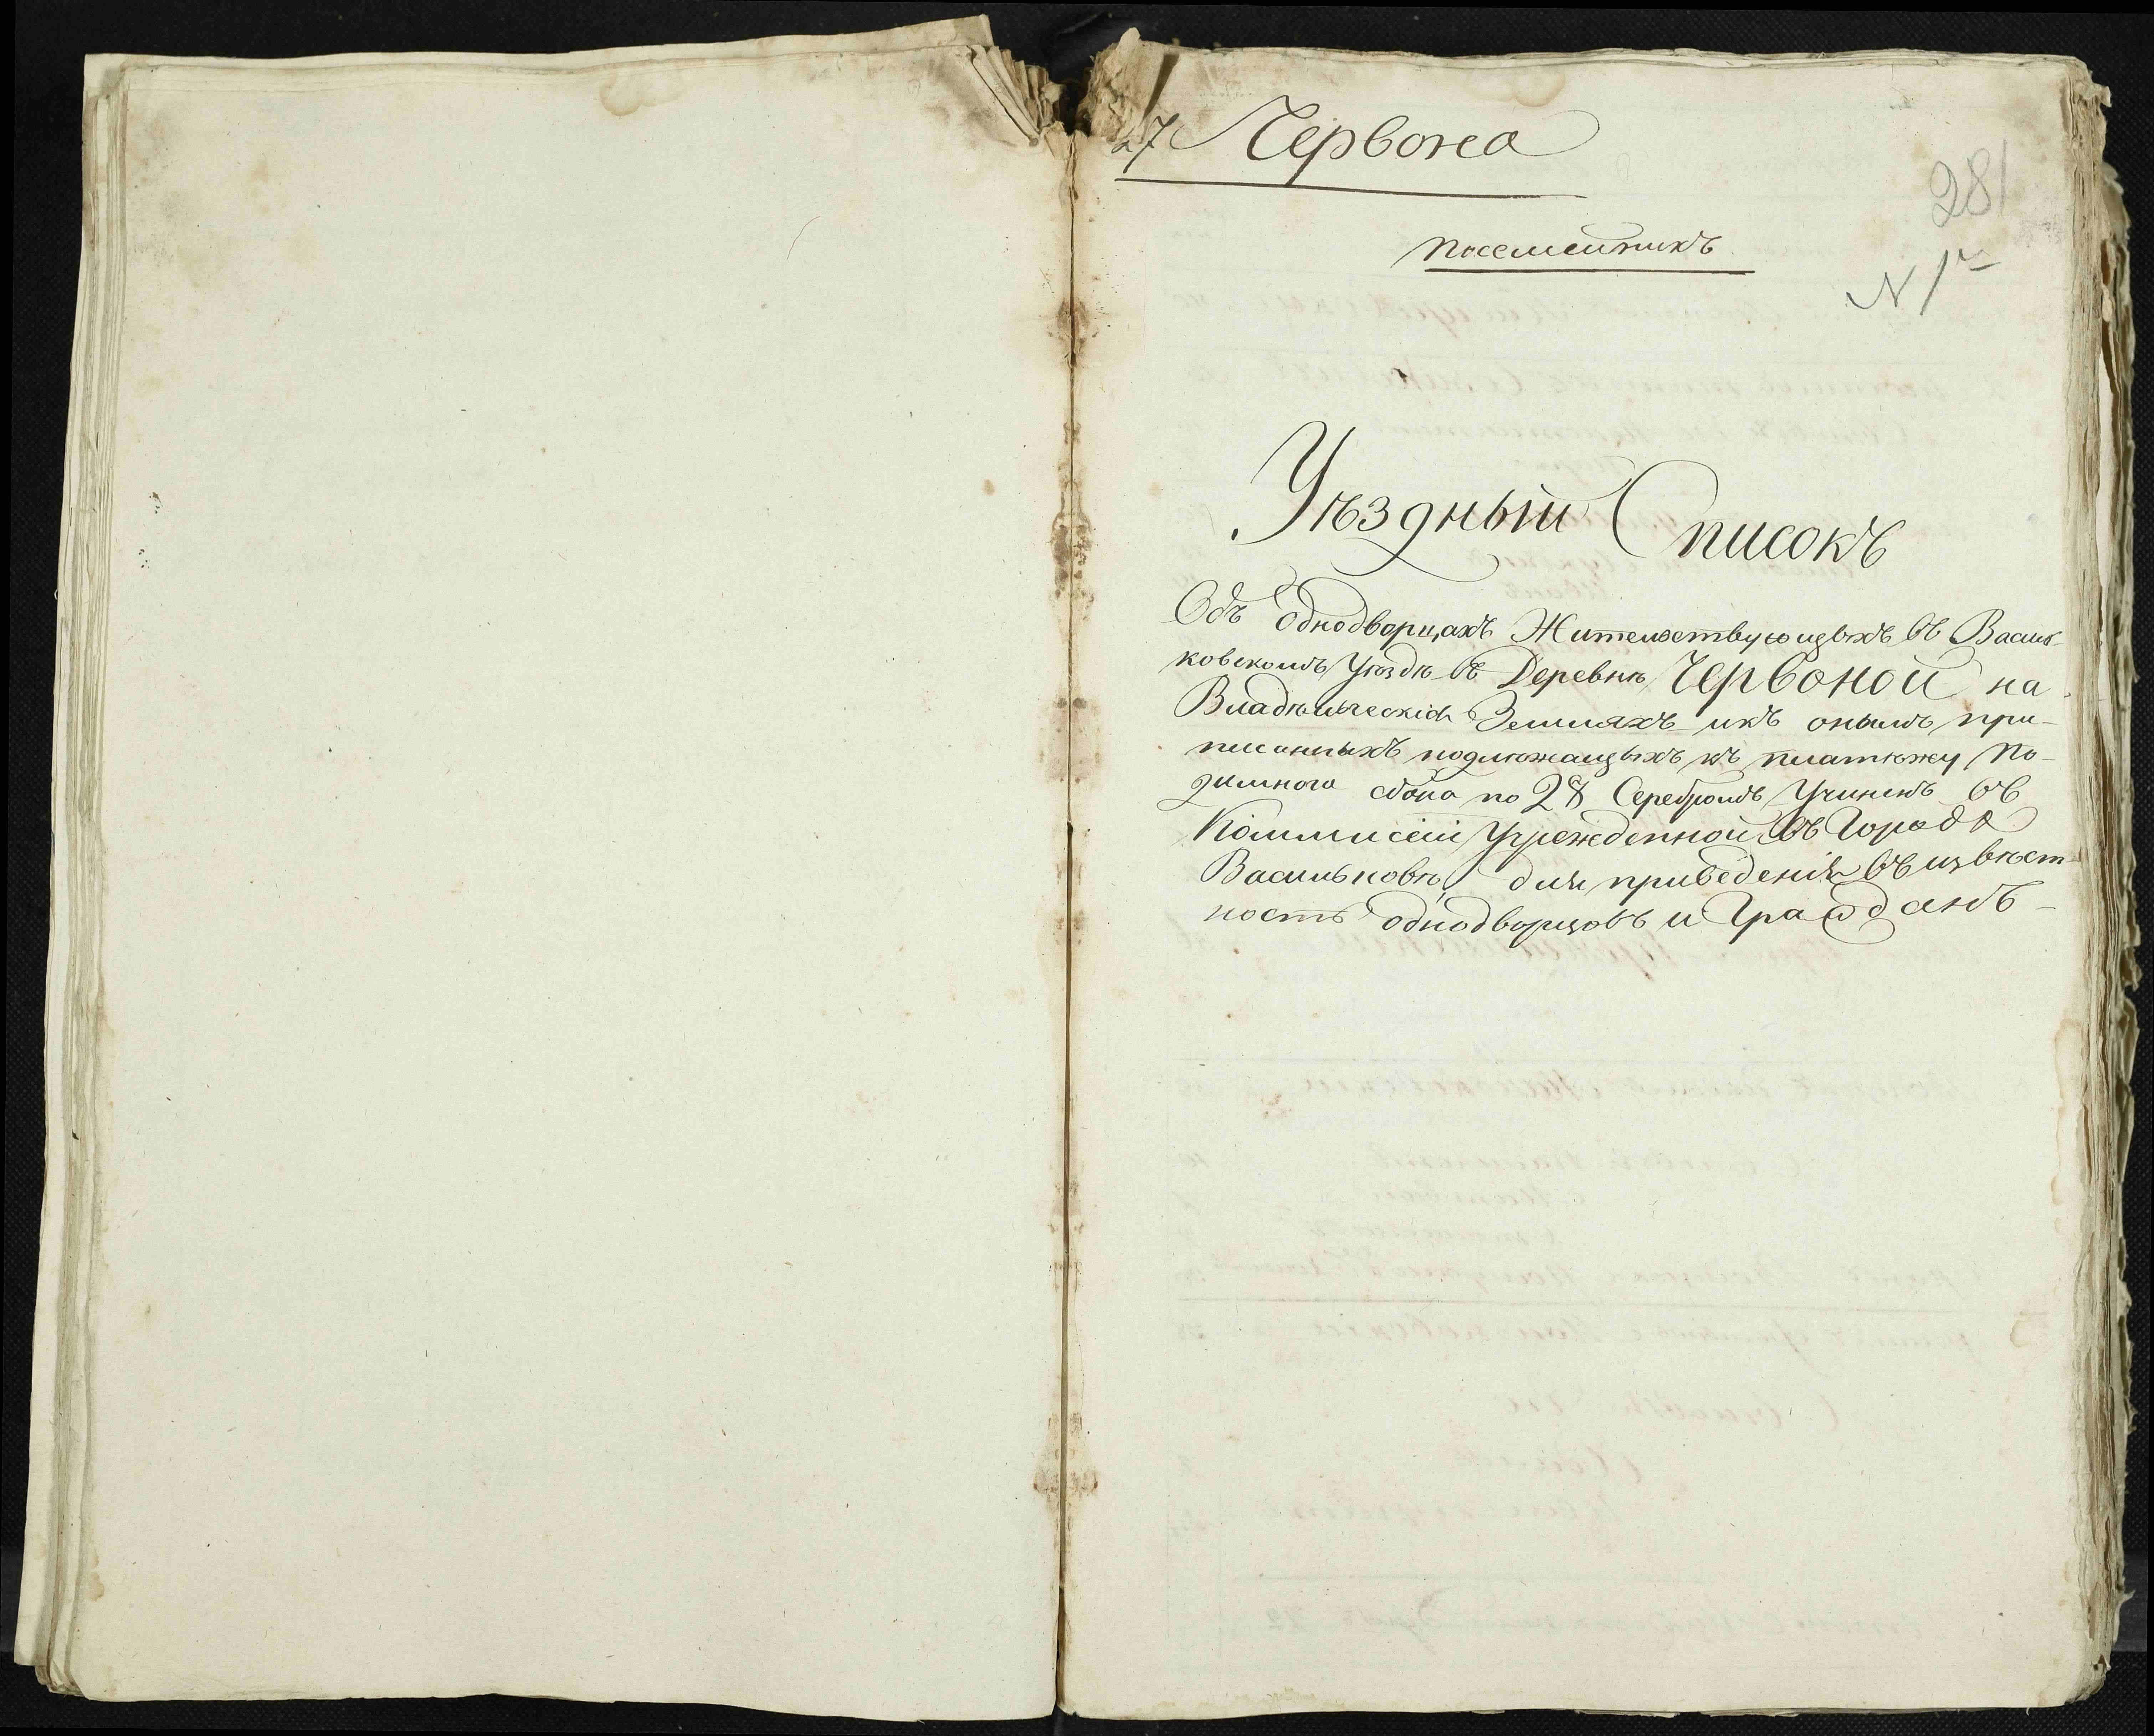 27 Червона
281
Посемейникъ
N 1й
Уѣздный Списокъ
Объ Однодворцахъ Жительствующыхъ въ Василь-
ковскомъ Уѣздѣ въ Деревнѣ Червоной на
Владѣльческихъ Земляхъ икъ онымъ при-
писанныхъ подлѣжащыхъ къ платѣжу По-
дымного сбора по 2 Серебромъ Учиненъ въ
Коммисіи Учрежденной въ Городѣ
Васильковѣ для приведенія въ извѣст-
ность однодворцовъ и Гражданъ